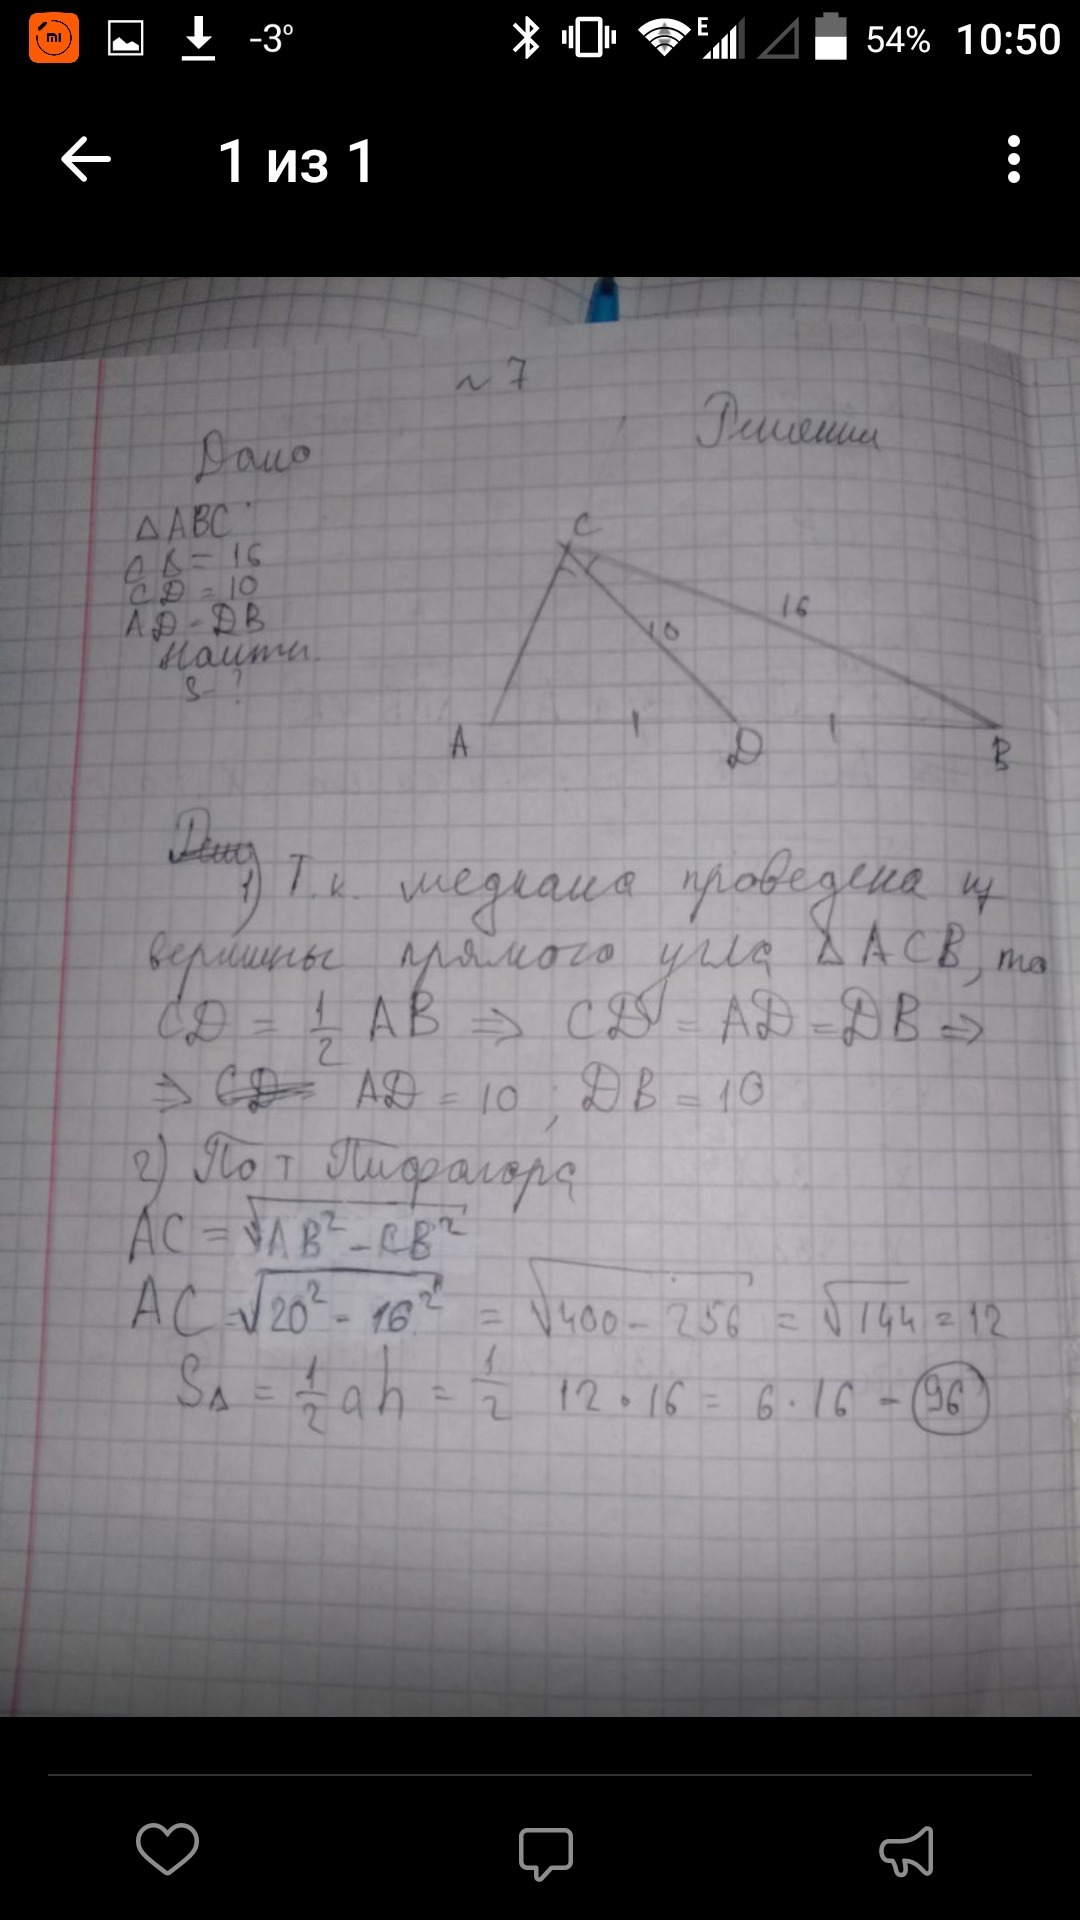 mi -3° E 54% 10:50
1 из 1
~ 7
Дано
Решении
△ ABC
CB = 16
CD = 10
AD - DB
Найти.
S - ?
C
16
10
A
D
B
1) Т.к. медиана проведена из
вершины прямого угла △ ACB, то
CD = 1/2 AB ⇒ CD = AD = DB ⇒
⇒ AD = 10 ; DB = 10
2) По т Пифагора
AC = √AB² - CB²
AC = √20² - 16² = √400 - 256 = √144 = 12
S△ = 1/2 ah = 1/2 12 · 16 = 6 · 16 - 96